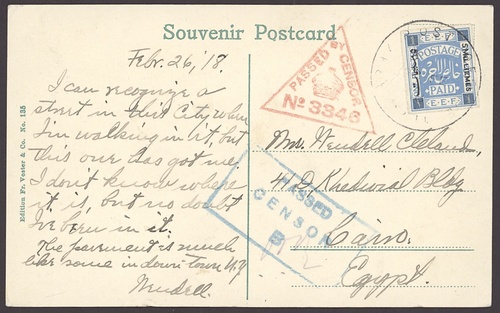 Souvenir Postcard
Febr. 26, '18.
I can recognize a
street in this City when
I'm walking in it, but
this one has got me.
I don't know where
it is, but no doubt
I've been in it.
The pavement is much
like some in down town N.Y.
Wendell.
Edition Fr. Vester & Co. No. 135
PASSED BY CENSOR
No 3346
E.E.F.
POSTAGE
PAID
E.E.F.
1
1
SMALLEMES
Mrs. Wendell Cleland,
4 D Khedivial Bldg
Cairo,
Egypt.
PASSED
CENSOR
B